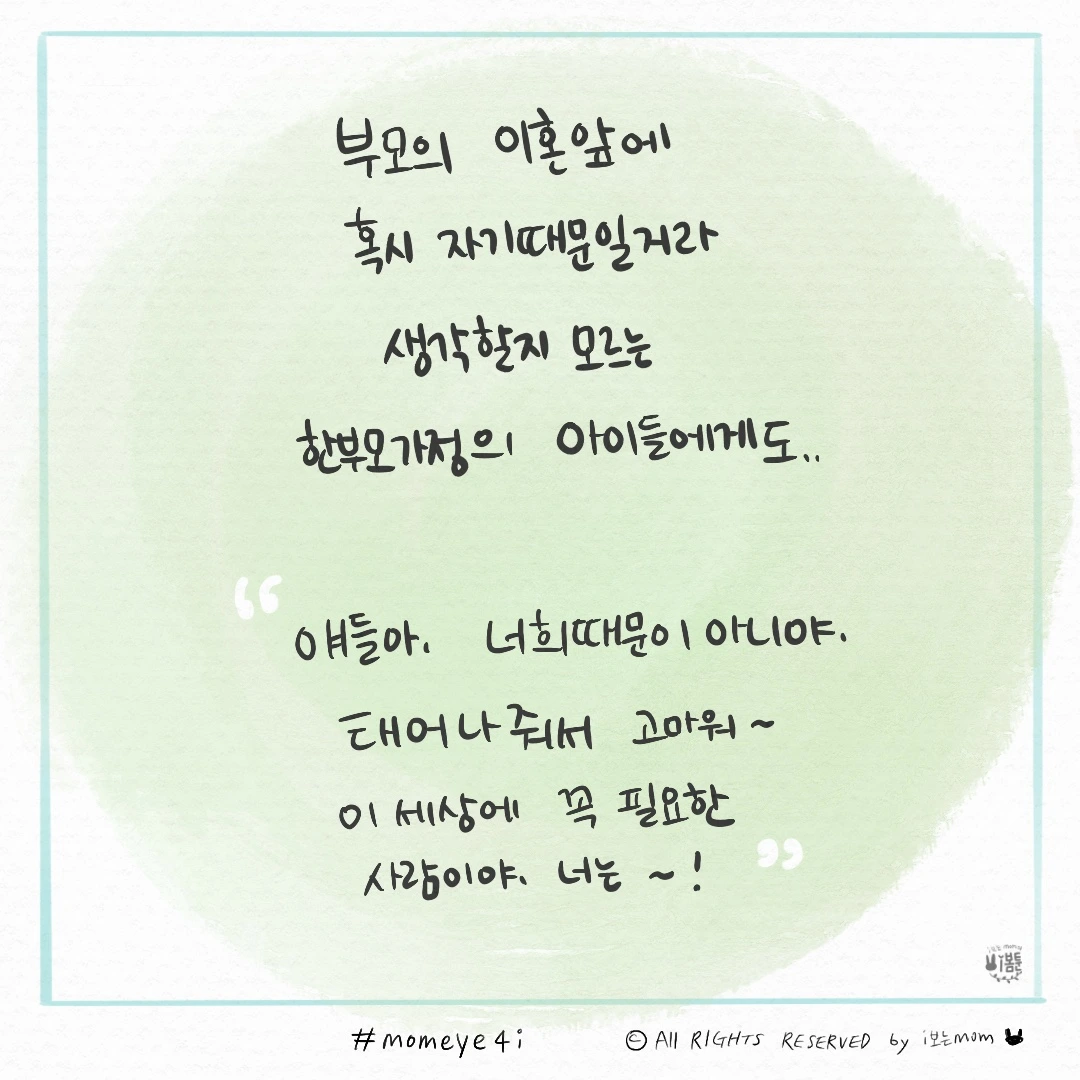 부모의 이혼앞에
혹시 자기때문일거라
생각할지 모르는
한부모가정의 아이들에게도..
“얘들아. 너희때문이 아니야.
태어나줘서 고마워~
이 세상에 꼭 필요한
사람이야. 너는 ~!”
i보는mom
i봄툰
#momeye4i
© All RIGHTS RESERVED by i보는mom